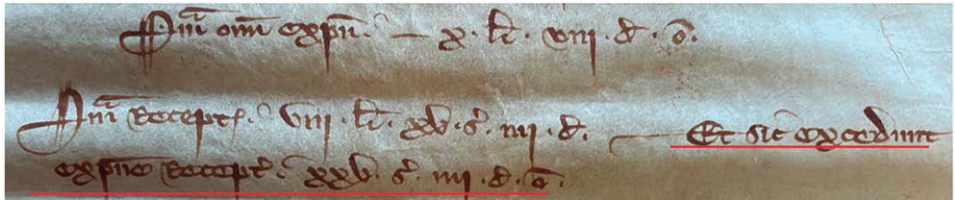 Sm̄a om̄ expn̄. — x. lī. viii. d̵. o̅.
Sm̄a Recept. viii. lī. xv. s̄. iiii. d̵. — Et sic̄ excedunt
expn̄e Recept. xxv. s̄. iiii. d̵. o̅.